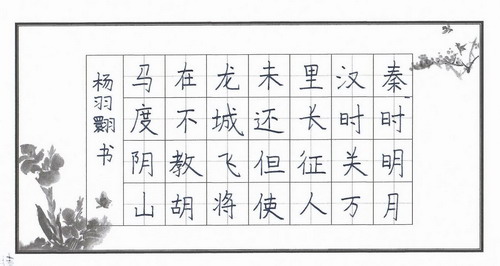 秦时明月
汉时关万
里长征人
未还但使
龙城飞将
在不教胡
马度阴山
杨羽书